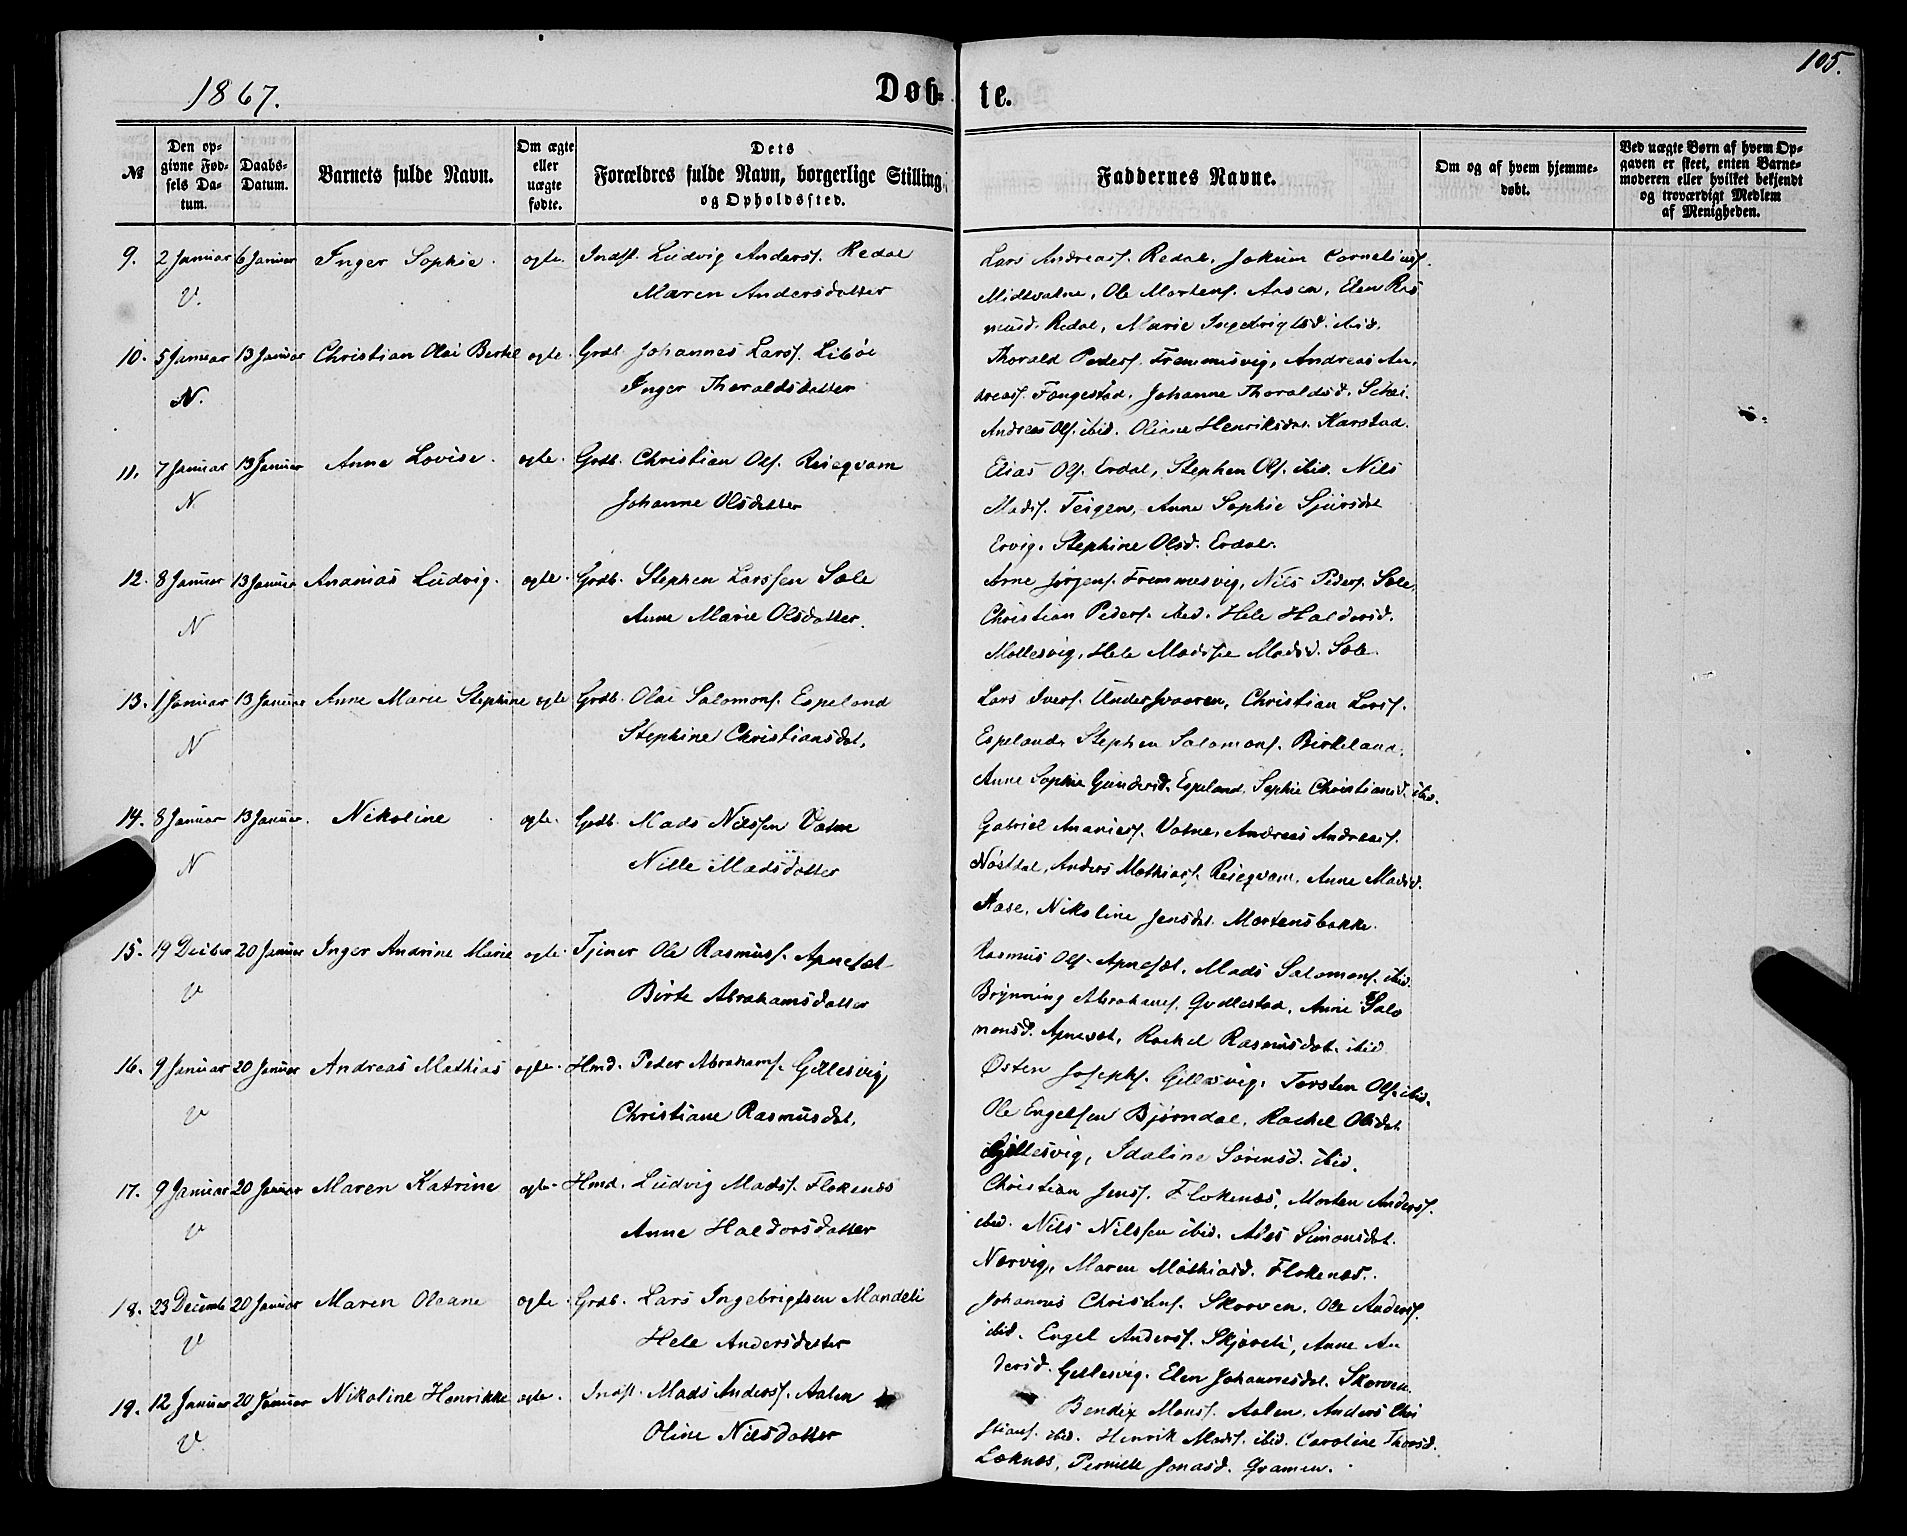 1867.
Døb-
te.
105.
№
Den op-
givne Fød-
sels Da-
tum.
Daabs-
Datum.
Barnets fulde Navn.
Om ægte
eller
uægte
fødte.
Dets
Forældres fulde Navn, borgerlige Stilling
og Opholdssted.
Faddernes Navne.
Om og af hvem hjemme-
døbt.
Ved uægte Børn af hvem Op-
gaven er skeet, enten Barne-
moderen eller hvilket bekjendt
og troværdigt Medlem
af Menigheden.
9. 2 Januar 6 Januar Inger Sophie. egte. Indst. Ludvig Anderss. Redal
V. Maren Andersdatter
Lars Andreass. Redal, Jokum Corneliuss.
Midtvatne, Ole Martens. Aasen, Elen Ras
musd. Redal, Marie Ingebrigtsd. ibid.
10. 5 Januar 13 Januar Christian Olai Bertel egte. Grdb. Johannes Larss. Liböe
N. Inger Thoraldsdatter
Thorald Peders. Fremmesvig, Andreas An-
dreass. Fongestad, Johanne Thoraldsd. Schei.
Andreas Ols. ibid. Oliane Henriksdat. Karstad.
11. 7 Januar 13 Januar Anne Lovise. egte. Grdb. Christian Ols. Riseqvam
N Johanne Olsdatter
Elias Ols. Erdal, Stephen Ols. ibid. Nils
Madss. Teigen, Anne Sophie Sjursdat
Ervig. Stephine Olsd. Erdal.
12. 8 Januar 13 Januar Ananias Ludvig. egte. Grdb. Stephen Larssen Sole
N Anne Marie Olsdatter.
Arne Jørgens. Fremmesvig, Nils Peders. Sole,
Christian Peders. ibid. Hele Haldorsd.
Mollesvig, Hele Madsd. Sole.
13. 1 Januar 13 Januar Anne Marie Stephine egte Grdb. Olai Salomons. Espeland
N Stephine Christiansdat.
Lars Ivers. Christian Larss.
Espeland, Stephen Salomons. Birkeland,
Anne Sophie Gundersd. Espeland. Sophie Christiansd. ibid.
14. 8 Januar 13 Januar. Nikoline egte. Grdb. Mads Nilssen Vatne
N Nille Madsdatter
Gabriel Ananiess. Vatne, Andreas Andreass.
Nöstdal, Anders Mathiass. Riseqvam, Anne Madsd.
Aase, Nikoline Jensdat. Mortensbakke.
15. 19 Decbber 20 Januar Inger Andrine Marie egte. Tjener Ole Rasmuss. Apneset
V Birte Abrahamsdatter
Rasmus Ols. Apneset, Mads Salomons. ibid.
Brynning Abrahams. Gullestad, Anne Salo
monsd. Apneset, Rachel Rasmusdat. ibid
16. 9 Januar 20 Januar Andreas Mathias egte. Hmd. Peder Abrahams. Gillesvig,
V Christiane Rasmusdat.
Østen Josephs. Gillesvig, Torsten Ols. ibid.
Ole Engelsen Bjørndal, Rachel Olsdat
Gillesvig, Idaline Sørensd. ibid.
17. 9 Januar 20 Januar Maren Katrine egte. Hmd. Ludvig Madss. Flokenes
V Anne Haldorsdatter
Christian Jenss. Flokenes, Morten Anderss.
ibid. Nils Nilssen ibid. Ales Simonsdat.
Nervig, Maren Mathiasd. Flokenes.
18. 23 Decemb 20 Januar Maren Oleane egte. Grdb. Lars Ingebrigtsen Mandeli
V Hele Andersdatter
Johannes Christens. Skorven. Ole Anderss.
ibid. Engel Anderss. Skjoreli, Anne An
dersd. Gillesvig. Elen Johannesdat. Skorven.
19. 12 Januar 20 Januar Nikoline Henrikke egte. Indst. Mads Anderss. Aalen
V. Oline Nilsdatter
Bendix Monss. Aalen, Anders Chri
stians. ibid. Henrik Madss. ibid. Caroline Thorsd.
Løknes, Pernille Jonasd. Qvamen.